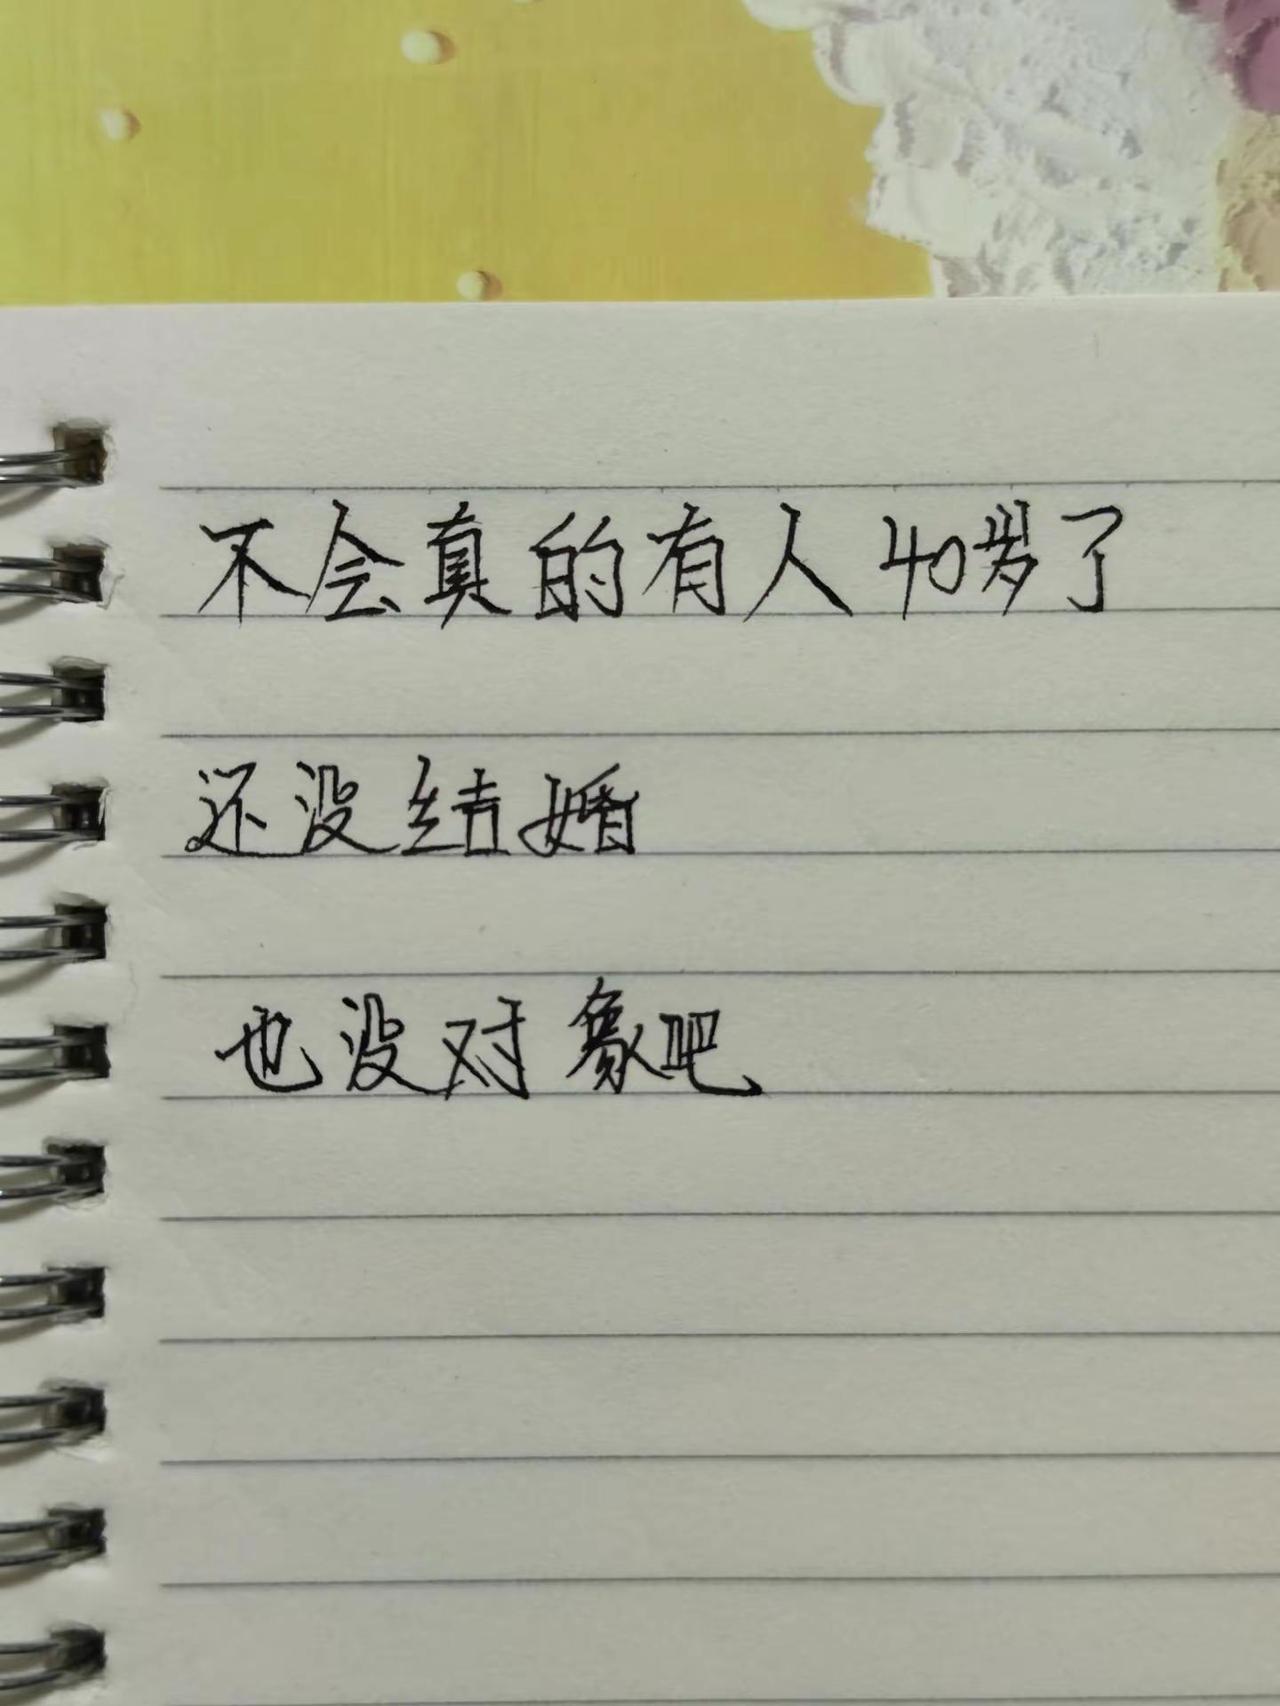 不会真的有人40岁了
还没结婚
也没对象吧